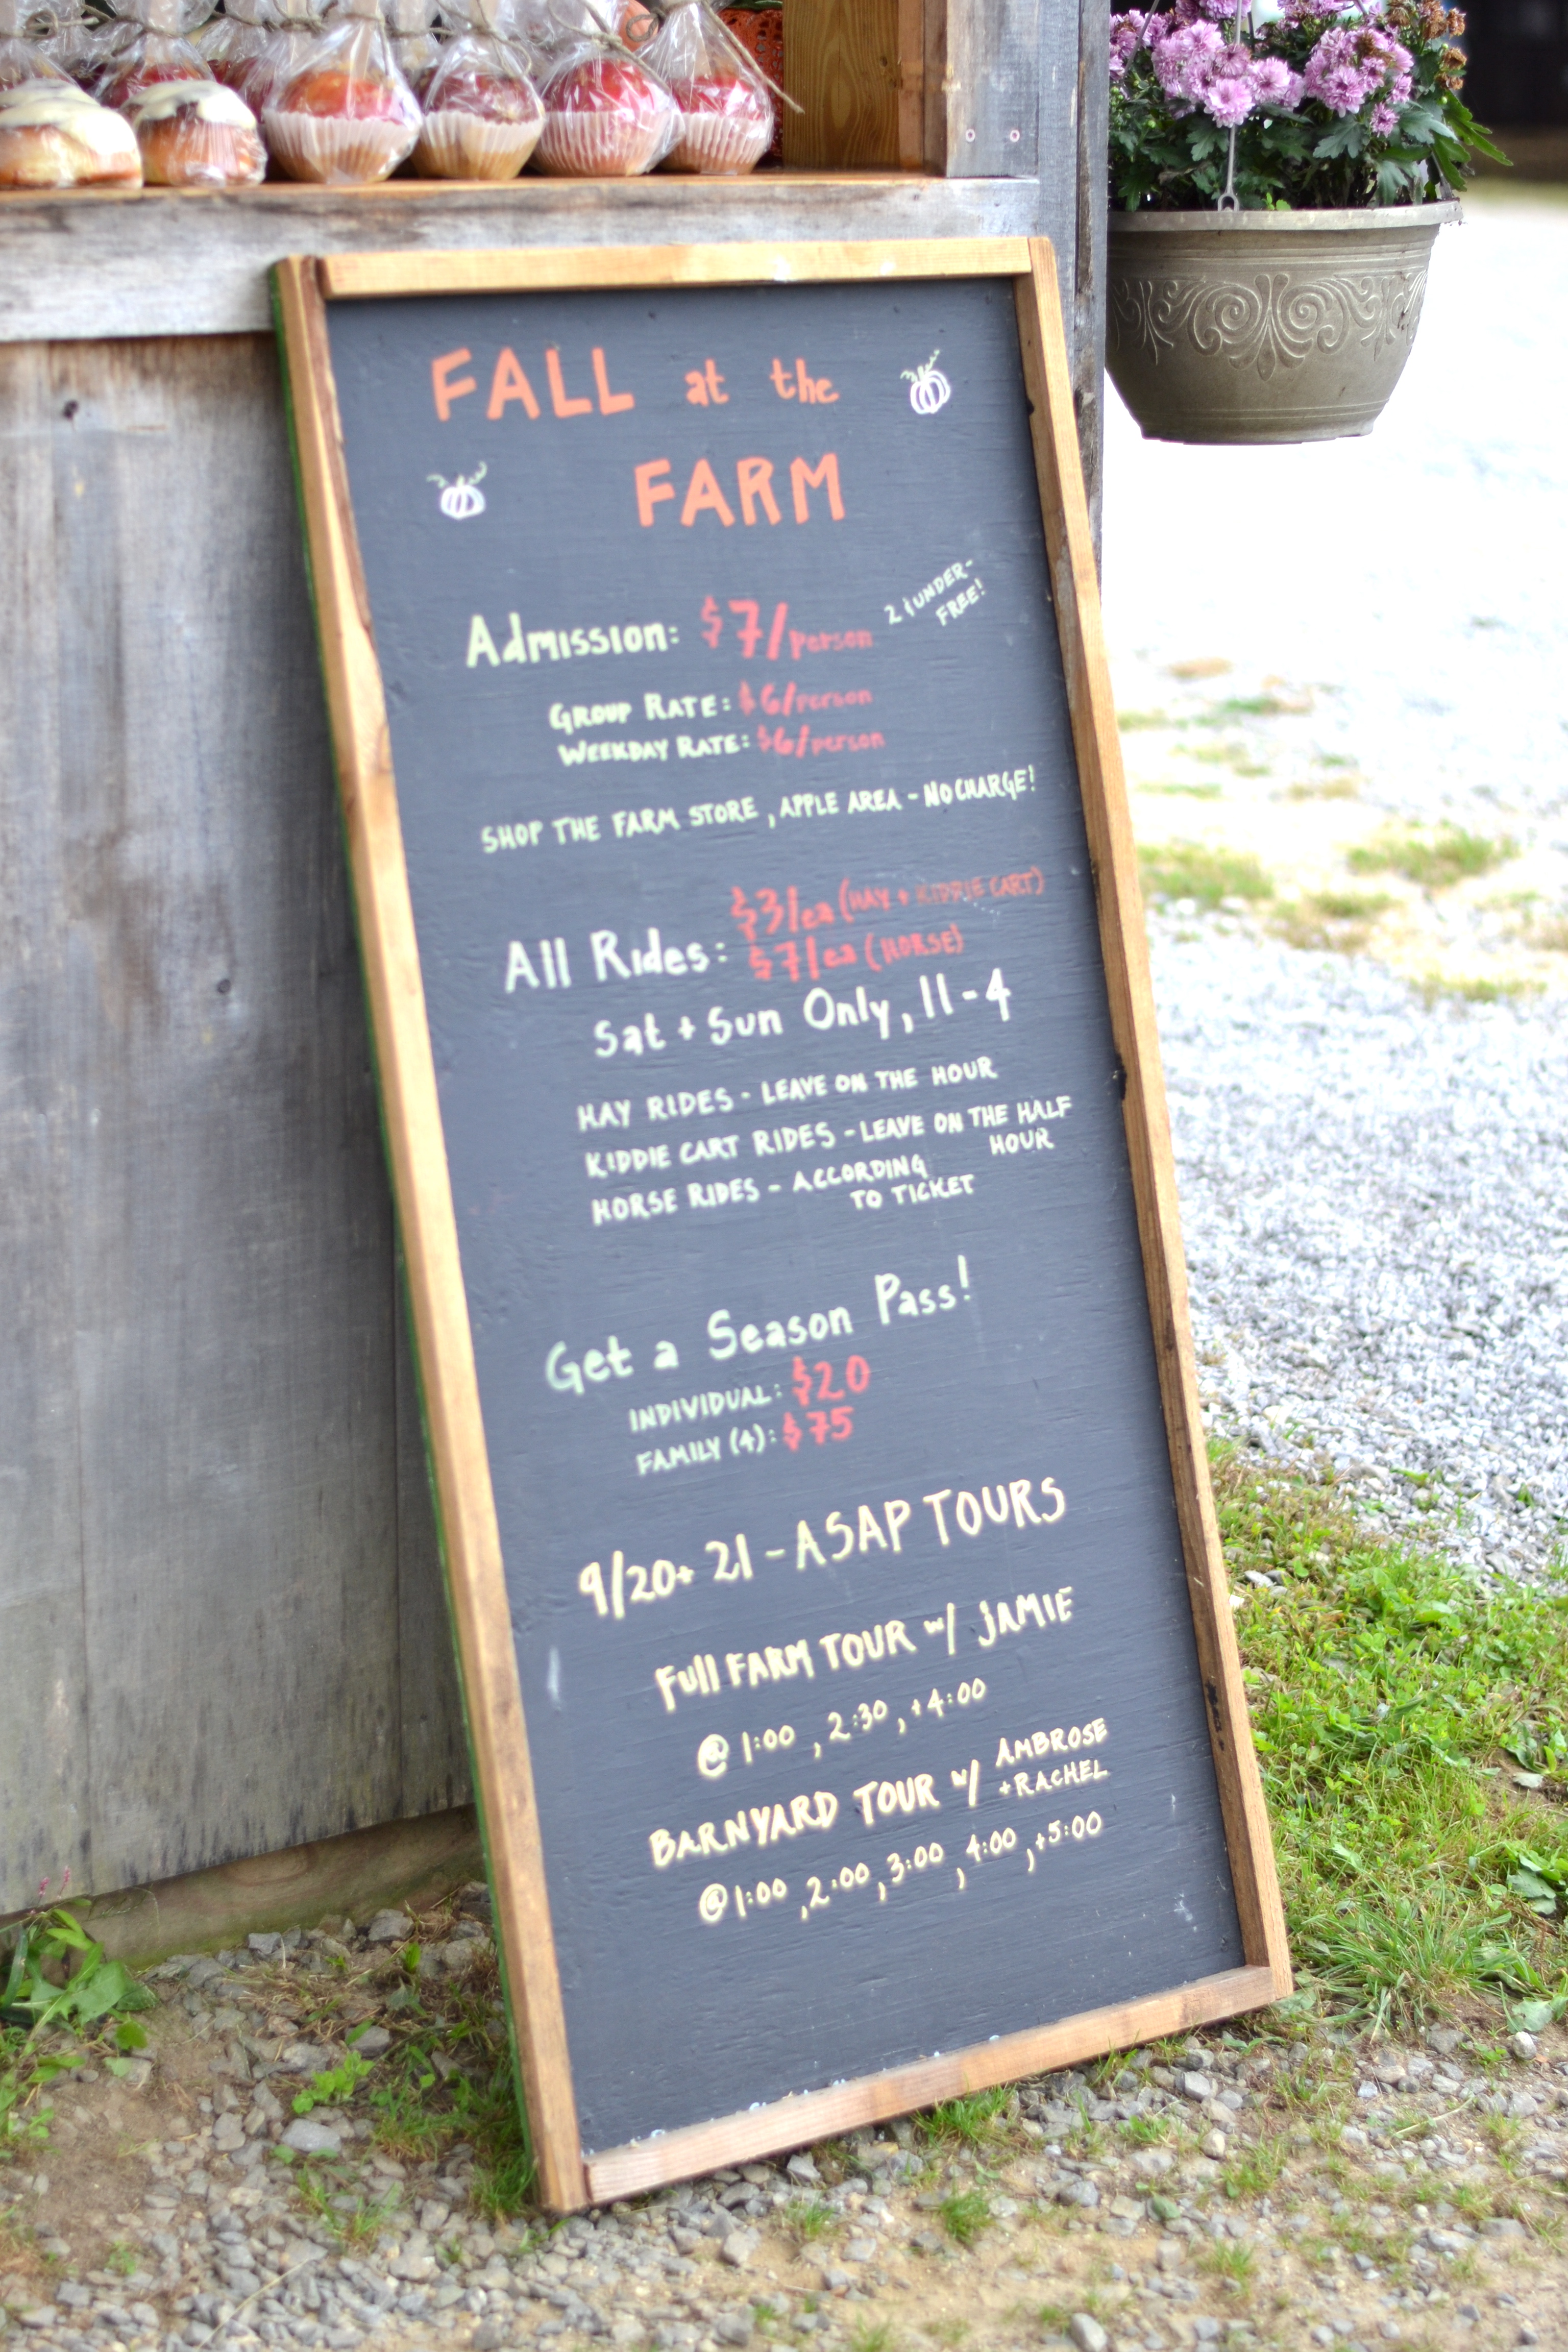 FALL at the
FARM
Admission: $7/person
2 & UNDER-
FREE!
GROUP RATE: $6/person
WEEKDAY RATE: $6/person
SHOP THE FARM STORE, APPLE AREA - NO CHARGE!
$3/ea (HAY + KIDDIE CART)
All Rides: $7/ea (HORSE)
Sat + Sun Only, 11-4
HAY RIDES - LEAVE ON THE HOUR
KIDDIE CART RIDES - LEAVE ON THE HALF
HOUR
HORSE RIDES - ACCORDING
TO TICKET
Get a Season Pass!
INDIVIDUAL: $20
FAMILY (4): $75
9/20+ 21 - ASAP TOURS
Full FARM TOUR w/ JAMIE
@ 1:00, 2:30, +4:00
BARNYARD TOUR w/ AMBROSE
+RACHEL
@1:00, 2:00, 3:00, 4:00, +5:00